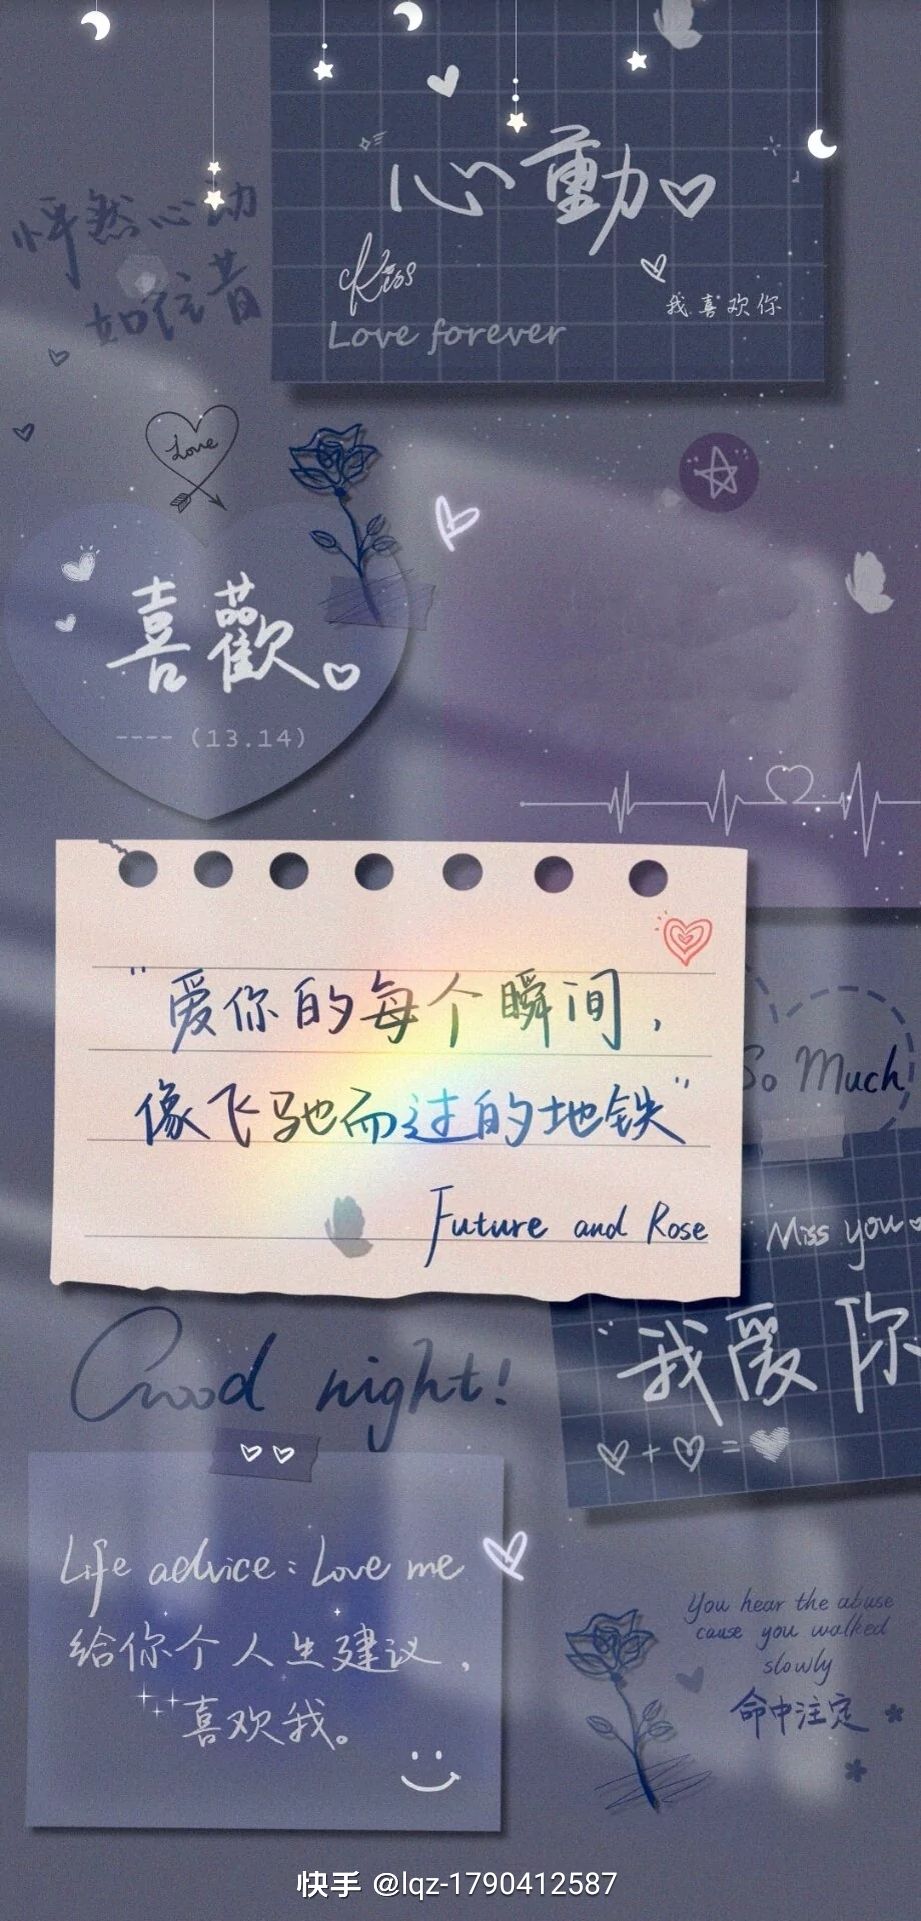 心動
怦然心动
如往昔
Kiss
我喜欢你
Love forever
Love
喜歡。
---- (13.14)
"爱你的每个瞬间，
像飞驰而过的地铁"
Future and Rose
So Much
Miss you
"我爱你
+ =
Good night!
Life advice: Love me
给你个人生建议，
喜欢我。
You hear the abuse
cause you walked
slowly
命中注定
快手 @lqz-1790412587